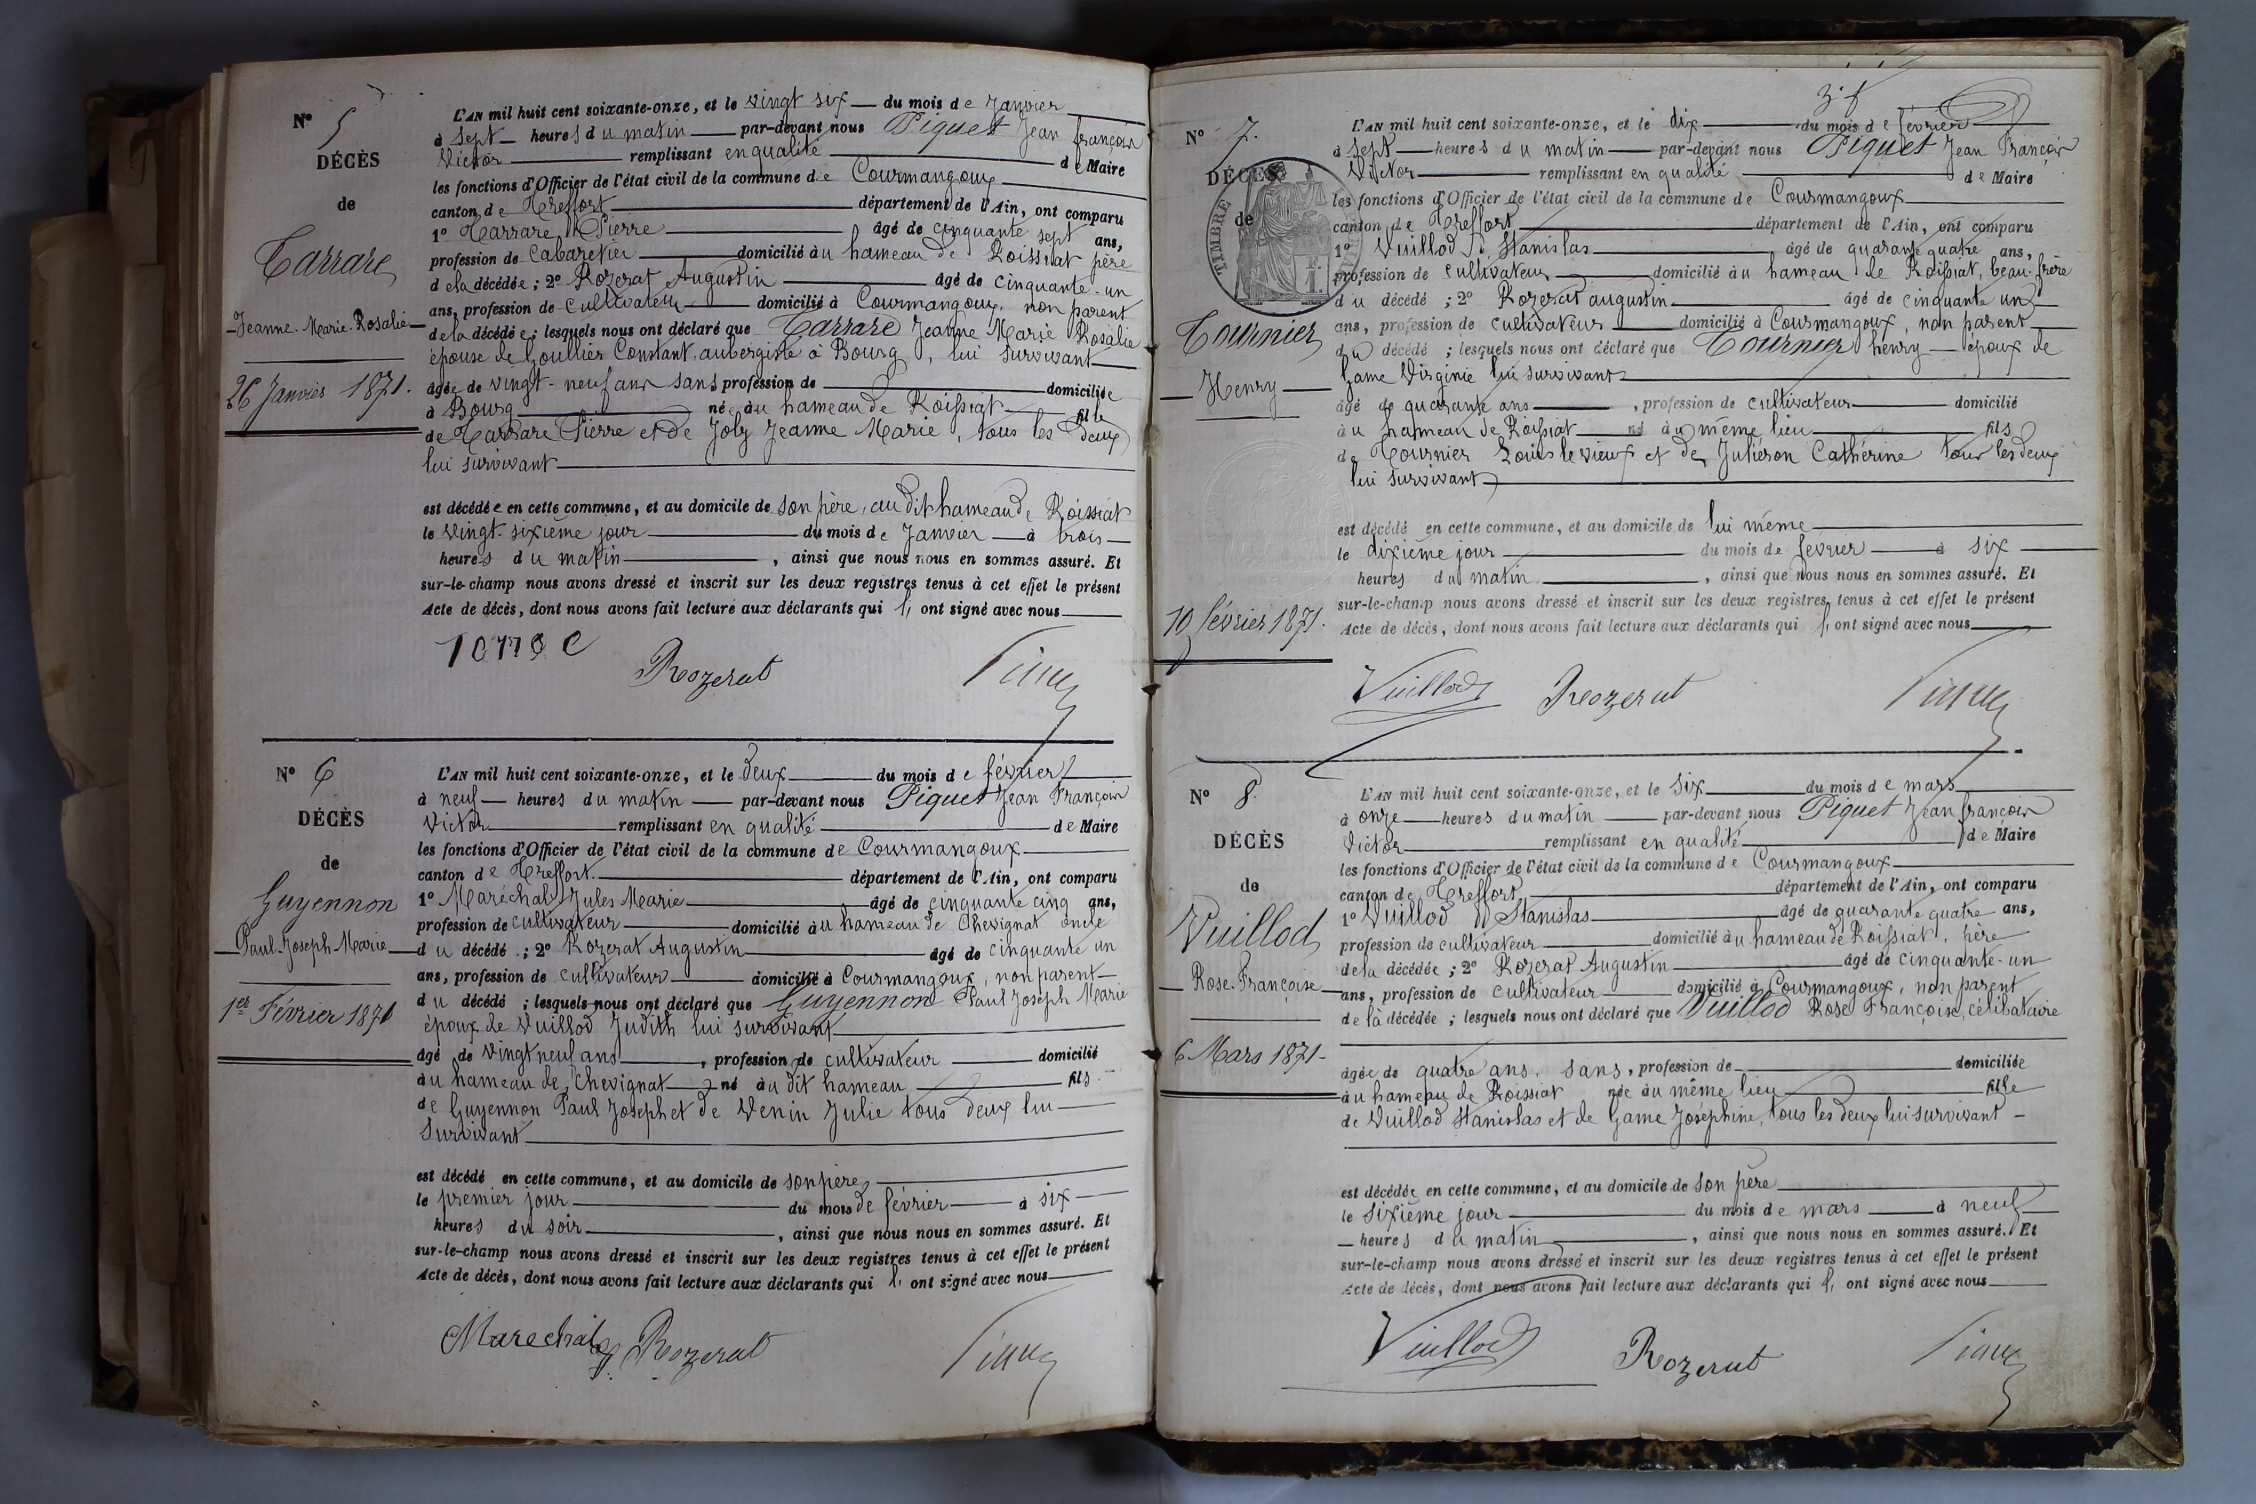 N° 5
DÉCÈS
de
Carrare
Jeanne-Marie-Rosalie
26 Janvier 1871.
L'AN mil huit cent soixante-onze, et le vingt six du mois de Janvier
à sept heures du matin par-devant nous Piquet Jean françois
Victor remplissant en qualité de Maire
les fonctions d'Officier de l'état civil de la commune de Courmangoux
canton de Treffort département de l'Ain, ont comparu
1° Carrare Pierre âgé de cinquante sept ans,
profession de Cabaretier domicilié au hameau de Roissiat père
de la décédée ; 2° Rozerat Augustin âgé de cinquante-un
ans, profession de cultivateur domicilié à Courmangoux, non parent
de la décédée ; lesquels nous ont déclaré que Carrare Jeanne Marie Rosalie
épouse de Goullier Constant, aubergiste à Bourg, lui survivant
âgée de vingt-neuf ans sans profession de domiciliée
à Bourg née au hameau de Roissiat fille
de Carrare Pierre et de Joly Jeanne Marie, tous les deux
lui survivant
est décédée en cette commune, et au domicile de son père, au dit hameau de Roissiat
le vingt-sixième jour du mois de Janvier à trois
heures du matin, ainsi que nous nous en sommes assuré. Et
sur-le-champ nous avons dressé et inscrit sur les deux registres tenus à cet effet le présent
Acte de décès, dont nous avons fait lecture aux déclarants qui l'ont signé avec nous
Rozerat
N° 6
DÉCÈS
de
Guyennon
Paul-Joseph-Marie
1er Février 1871
L'AN mil huit cent soixante-onze, et le deux du mois de février
à neuf heures du matin par-devant nous Piquet Jean François
Victor remplissant en qualité de Maire
les fonctions d'Officier de l'état civil de la commune de Courmangoux
canton de Treffort département de l'Ain, ont comparu
1° Maréchal Jules Marie âgé de cinquante cinq ans,
profession de cultivateur domicilié au hameau de Chevignat oncle
du décédé ; 2° Rozerat Augustin âgé de cinquante un
ans, profession de cultivateur domicilié à Courmangoux, non parent
du décédé ; lesquels nous ont déclaré que Guyennon Paul Joseph Marie
époux de Vuillod Judith lui survivant
âgé de vingt neuf ans, profession de cultivateur domicilié
au hameau de Chevignat né au dit hameau fils
de Guyennon Paul Joseph et de Venin Julie tous deux lui
survivant
est décédé en cette commune, et au domicile de son père
le premier jour du mois de février à six
heures du soir, ainsi que nous nous en sommes assuré. Et
sur-le-champ nous avons dressé et inscrit sur les deux registres tenus à cet effet le présent
Acte de décès, dont nous avons fait lecture aux déclarants qui l'ont signé avec nous
Marechal Rozerat
N° 7.
DÉCÈS
de
TIMBRE
Tournier
Henry
10 février 1871.
L'AN mil huit cent soixante-onze, et le dix du mois de février
à sept heures du matin par-devant nous Piquet Jean François
Victor remplissant en qualité de Maire
les fonctions d'Officier de l'état civil de la commune de Courmangoux
canton de Treffort département de l'Ain, ont comparu
1° Vuillod Stanislas âgé de quarante quatre ans,
profession de cultivateur domicilié au hameau de Roissiat, beau-frère
du décédé ; 2° Rozerat augustin âgé de cinquante un
ans, profession de cultivateur domicilié à Courmangoux, non parent
du décédé ; lesquels nous ont déclaré que Tournier henry époux de
Game Virginie lui survivant
âgé de quarante ans, profession de cultivateur domicilié
au hameau de Roissiat né au même lieu fils
de Tournier Louis le vieux et de Julieron Cathérine tous les deux
lui survivant
est décédé en cette commune, et au domicile de lui même
le dixième jour du mois de février à six
heures du matin, ainsi que nous nous en sommes assuré. Et
sur-le-champ nous avons dressé et inscrit sur les deux registres tenus à cet effet le présent
Acte de décès, dont nous avons fait lecture aux déclarants qui l'ont signé avec nous
Vuillod Rozerat
N° 8.
DÉCÈS
de
Vuillod
Rose-Françoise
6 Mars 1871
L'AN mil huit cent soixante-onze, et le six du mois de mars
à onze heures du matin par-devant nous Piquet Jean françois
Victor remplissant en qualité de Maire
les fonctions d'Officier de l'état civil de la commune de Courmangoux
canton de Treffort département de l'Ain, ont comparu
1° Vuillod Stanislas âgé de quarante quatre ans,
profession de cultivateur domicilié au hameau de Roissiat, père
de la décédée ; 2° Rozerat Augustin âgé de cinquante-un
ans, profession de cultivateur domicilié à Courmangoux, non parent
de la décédée ; lesquels nous ont déclaré que Vuillod Rose Françoise, célibataire
âgée de quatre ans, sans, profession de domiciliée
au hameau de Roissiat née au même lieu fille
de Vuillod Stanislas et de Game Joséphine, tous les deux lui survivant
est décédée en cette commune, et au domicile de son père
le sixième jour du mois de mars à neuf
heures du matin, ainsi que nous nous en sommes assuré. Et
sur-le-champ nous avons dressé et inscrit sur les deux registres tenus à cet effet le présent
Acte de décès, dont nous avons fait lecture aux déclarants qui l'ont signé avec nous
Vuillod Rozerat